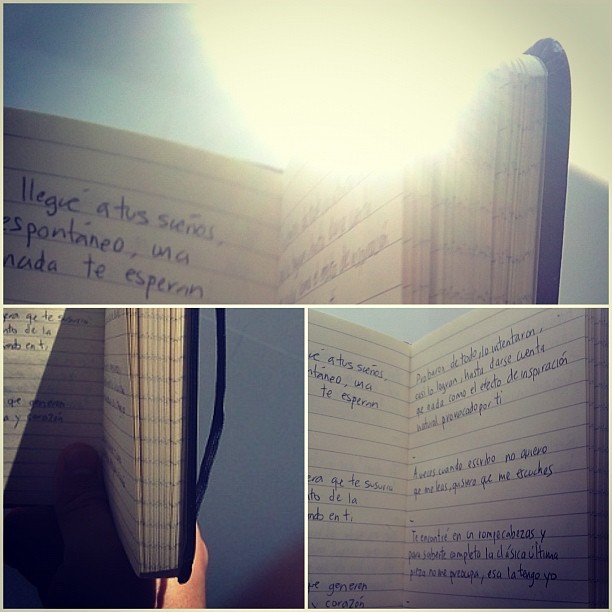 llegué a tus sueños,
espontáneo, una
nada te esperan
era que te susurra
nto de la
ando en ti
que generen
a y corazón
ué a tus sueños,
ontáneo, una
te esperan
era que te susurra
nto de la
ando en ti,
que generen
y corazón
Probaron de todo, lo intentaron,
casi lo logran, hasta darse cuenta
que nada como el efecto de inspiración
natural provocado por ti
-
A veces cuando escribo no quiero
que me leas, quiero que me escuches
-
Te encontré en un rompecabezas y
para saberte completo la clásica última
pieza no me preocupa, esa la tengo yo